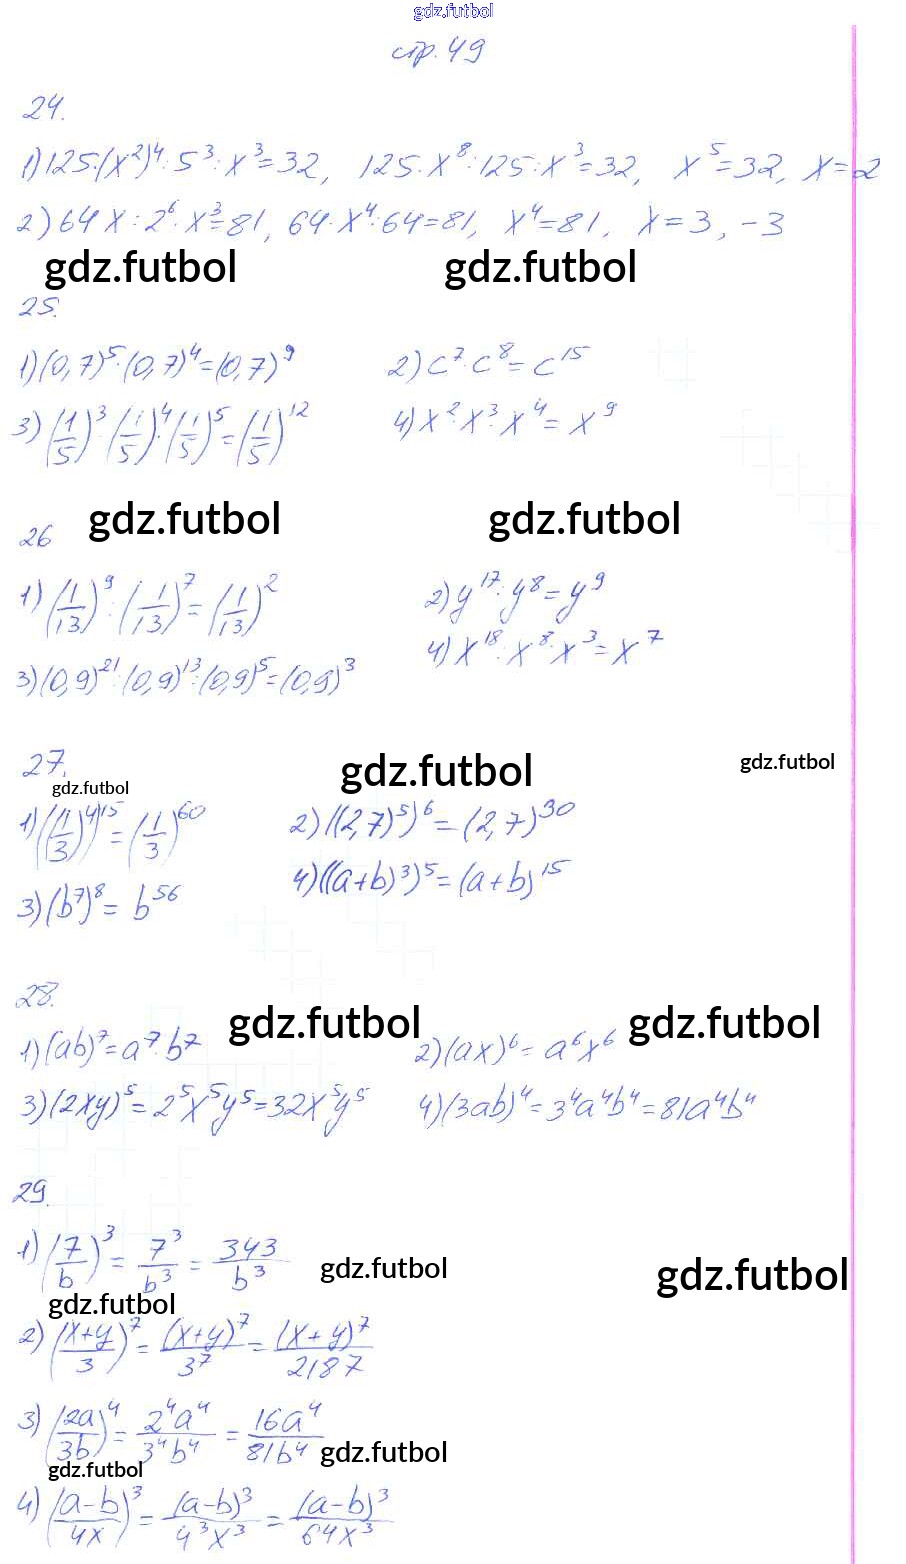 gdz.futbol
стр. 49
24.
1) 125·(x²)⁴ : 5³ : x³ = 32, 125·x⁸ : 125 : x³ = 32, x⁵ = 32, x = 2
2) 64x : 2⁶ · x³ = 81, 64·x⁴ : 64 = 81, x⁴ = 81, x = 3, -3
gdz.futbol gdz.futbol
25.
1) (0,7)⁵·(0,7)⁴ = (0,7)⁹ 2) c⁷·c⁸ = c¹⁵
3) (1/5)³·(1/5)⁴·(1/5)⁵ = (1/5)¹² 4) x²·x³·x⁴ = x⁹
gdz.futbol gdz.futbol
26
1) (1/13)⁹ : (1/13)⁷ = (1/13)² 2) y¹⁷ : y⁸ = y⁹
3) (0,9)²¹ : (0,9)¹³ : (0,9)⁵ = (0,9)³ 4) x¹⁸ : x⁸ : x³ = x⁷
27. gdz.futbol gdz.futbol
gdz.futbol
1) ((1/3)⁴)¹⁵ = (1/3)⁶⁰ 2) ((2,7)⁵)⁶ = (2,7)³⁰
3) (b⁷)⁸ = b⁵⁶ 4) ((a+b)³)⁵ = (a+b)¹⁵
28.
gdz.futbol gdz.futbol
1) (ab)⁷ = a⁷·b⁷ 2) (ax)⁶ = a⁶x⁶
3) (2xy)⁵ = 2⁵x⁵y⁵ = 32x⁵y⁵ 4) (3ab)⁴ = 3⁴a⁴b⁴ = 81a⁴b⁴
29.
1) (7/b)³ = 7³/b³ = 343/b³
gdz.futbol gdz.futbol
gdz.futbol
2) ((x+y)/3)⁷ = (x+y)⁷/3⁷ = (x+y)⁷/2187
3) (2a/3b)⁴ = 2⁴a⁴/3⁴b⁴ = 16a⁴/81b⁴
gdz.futbol gdz.futbol
4) ((a-b)/4x)³ = (a-b)³/4³x³ = (a-b)³/64x³